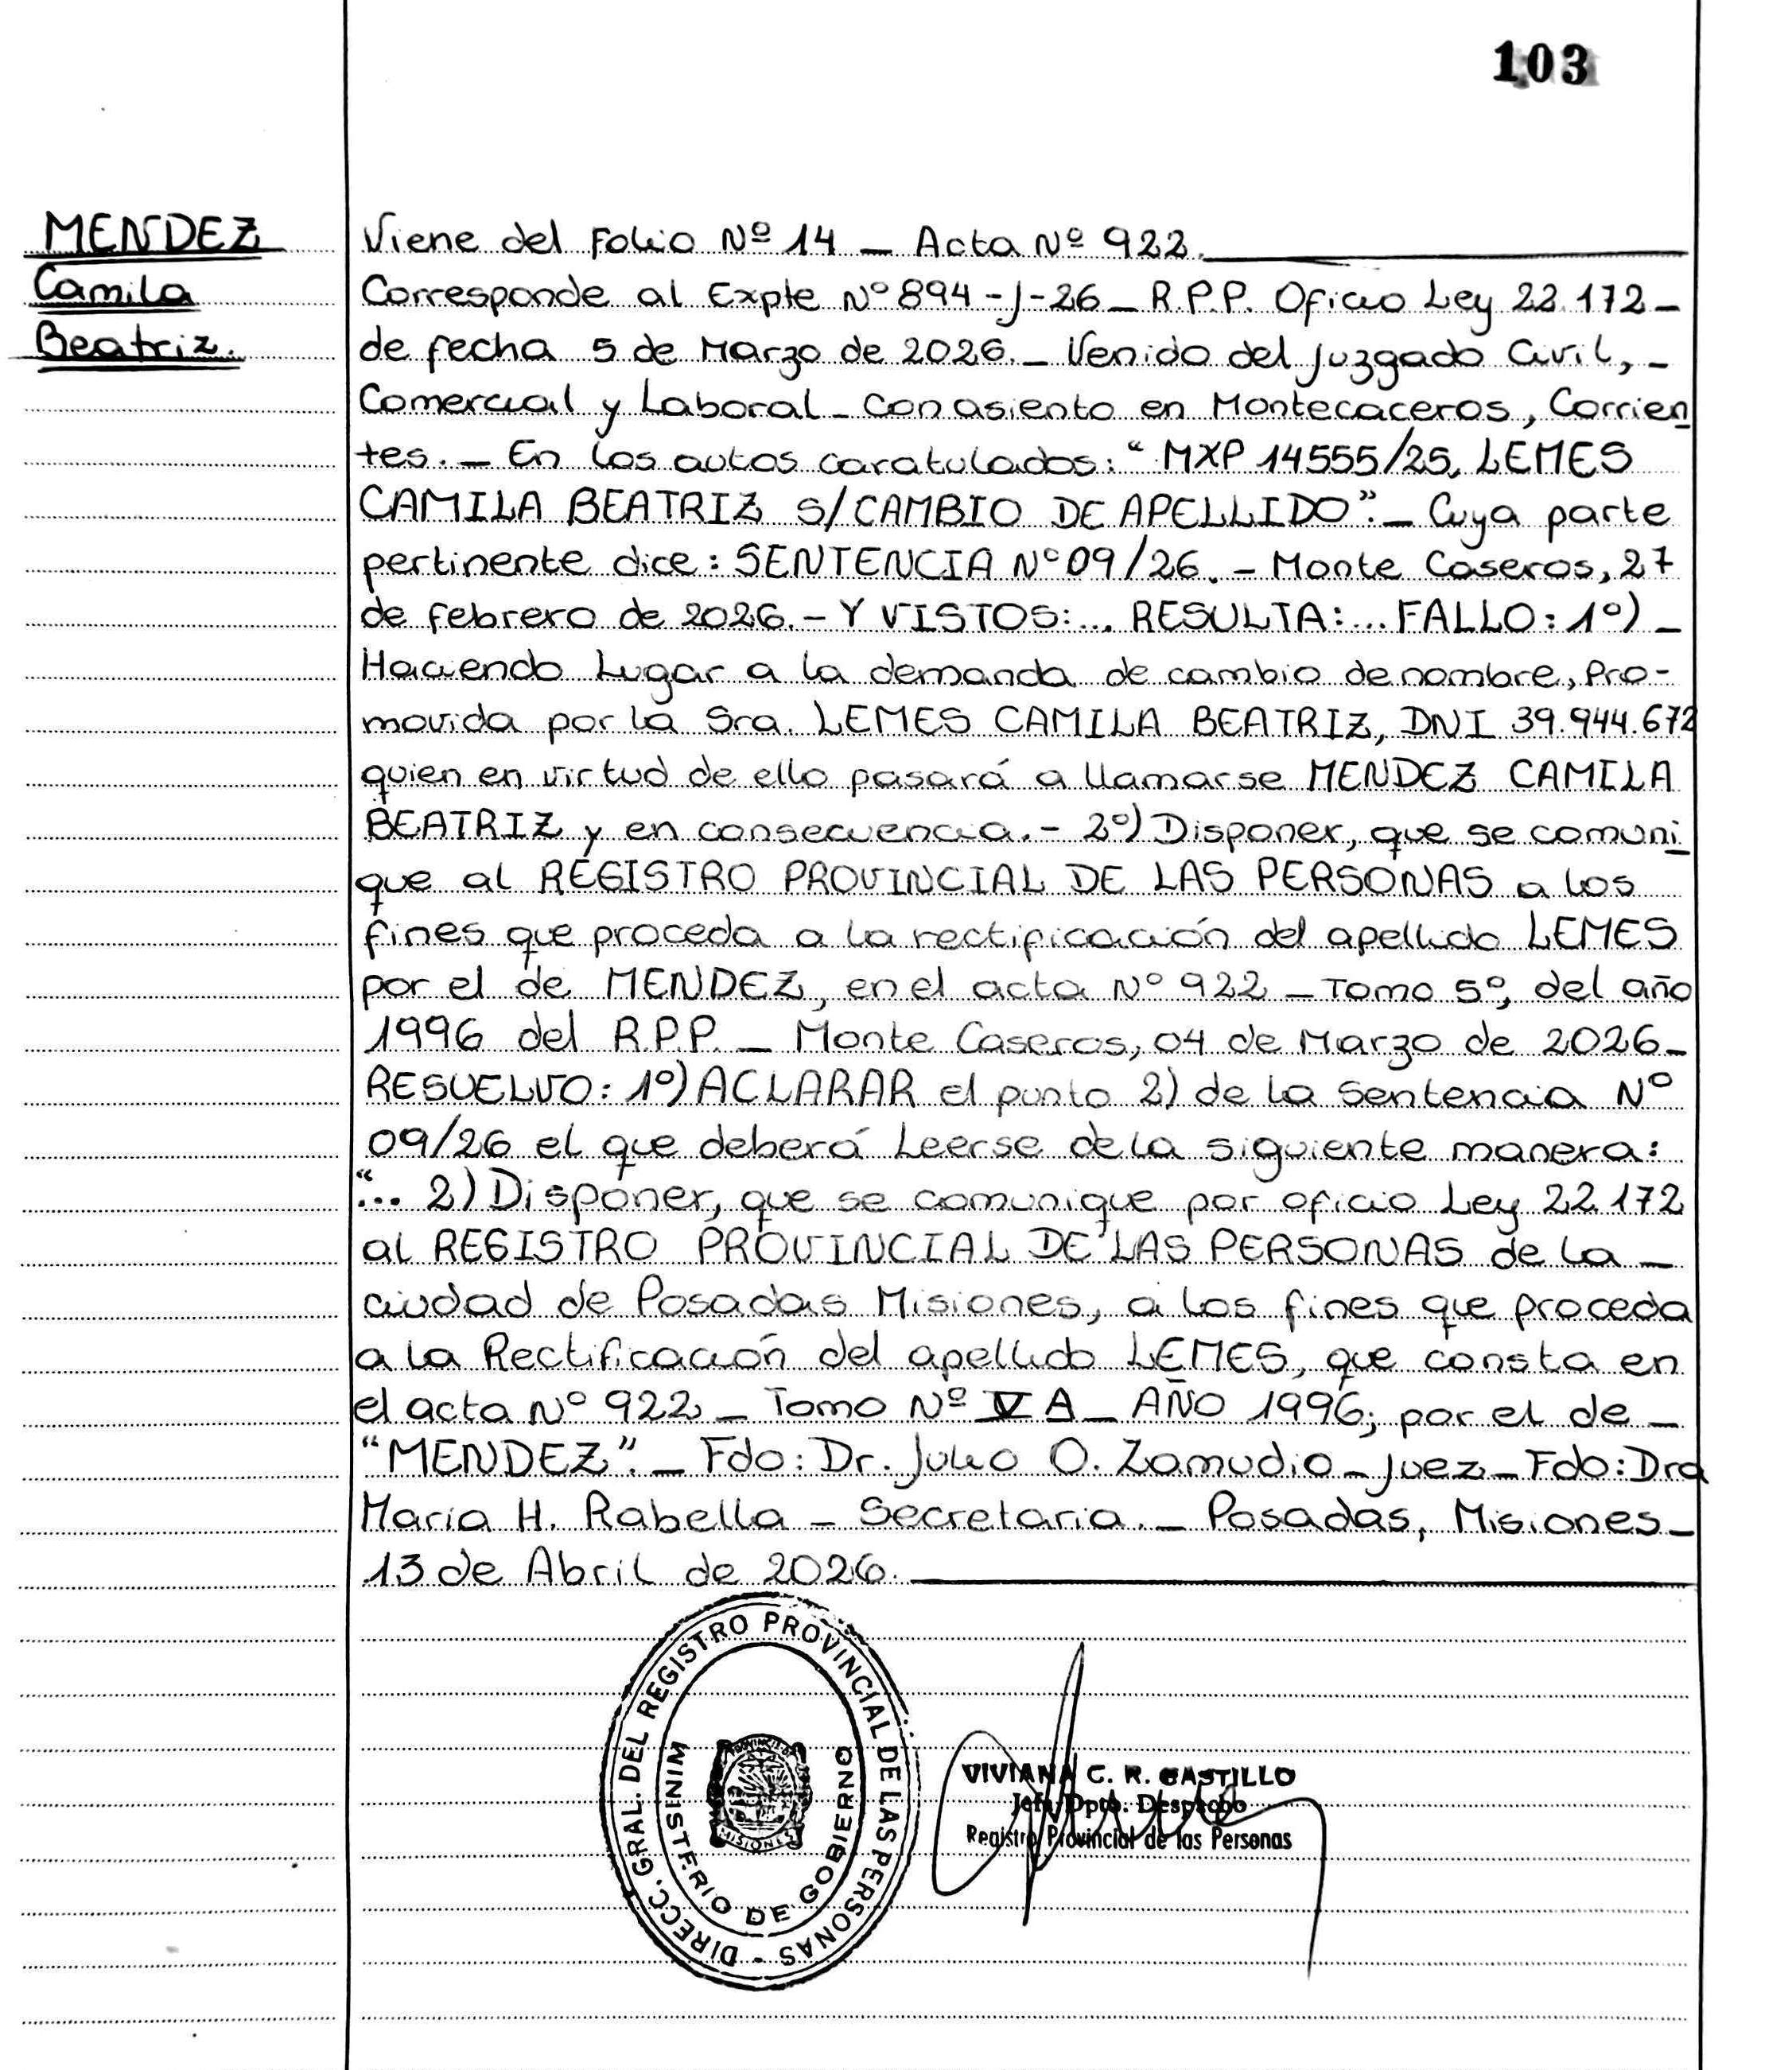 103
MENDEZ
Camila
Beatriz.
Viene del Folio Nº 14 _ Acta Nº 922.
Corresponde al Expte Nº 894-J-26 _ R.P.P. Oficio Ley 22.172 _
de fecha 5 de Marzo de 2026. _ Venido del Juzgado Civil, -
Comercial y Laboral _ con asiento en Montecaceros, Corrien
tes. _ En los autos caratulados: "MXP 14555/25, LEMES
CAMILA BEATRIZ S/CAMBIO DE APELLIDO". _ Cuya parte
pertinente dice: SENTENCIA Nº 09/26. - Monte Caseros, 27
de febrero de 2026. - Y VISTOS: ... RESULTA: ... FALLO: 1º) _
Haciendo Lugar a la demanda de cambio de nombre, Pro-
movida por la Sra. LEMES CAMILA BEATRIZ, DNI 39.944.672
quien en virtud de ello pasará a llamarse MENDEZ CAMILA
BEATRIZ y en consecuencia. - 2º) Disponer, que se comuni
que al REGISTRO PROVINCIAL DE LAS PERSONAS a los
fines que proceda a la rectificación del apellido LEMES
por el de MENDEZ, en el acta Nº 922 _ Tomo 5º, del año
1996 del R.P.P. _ Monte Caseros, 04 de Marzo de 2026 _
RESUELVO: 1º) ACLARAR el punto 2) de la Sentencia Nº
09/26 el que deberá Leerse de la siguiente manera:
"... 2) Disponer, que se comunique por oficio Ley 22.172
al REGISTRO PROVINCIAL DE LAS PERSONAS de la _
ciudad de Posadas Misiones, a los fines que proceda
a la Rectificación del apellido LEMES, que consta en
el acta Nº 922 _ Tomo Nº V A _ AÑO 1996, por el de _
"MENDEZ". _ Fdo: Dr. Julio O. Zamudio _ Juez _ Fdo: Dra
Maria H. Rabella _ Secretaria. _ Posadas, Misiones _
13 de Abril de 2026.
DIRECC. GRAL. DEL REGISTRO PROVINCIAL DE LAS PERSONAS -
MINISTERIO DE GOBIERNO
PROVINCIA DE
MISIONES
VIVIANA C. R. CASTILLO
Jefa Dpto. Despacho
Registro Provincial de las Personas